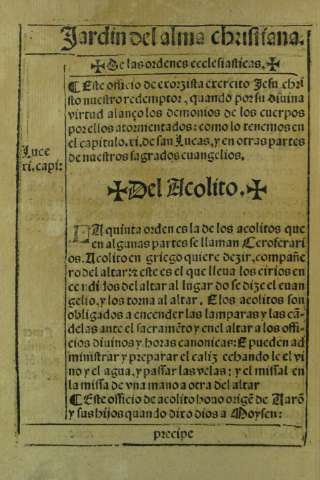 Jardin del alma christiana.
✠De las ordenes ecclesiasticas.✠
¶Este officio de exorzista exercito Jesu chri
sto nuestro redemptor, quando por su diuina
virtud alanço los demonios de los cuerpos
por ellos atormentados: como lo tenemos en
el capitulo.xi. de san Lucas, y en otras partes
de nuestros sagrados euangelios.
Luce
xi.capi:
✠Del Acolito.✠
LA quinta orden es la de los acolitos que
en algunas partes se llaman Ceroferari
os. Acolito en griego quiere dezir, compañe
ro del altar: ⁊ este es el que lleua los cirios en
cendidos del altar al lugar do se dize el euan
gelio, y los torna al altar. E los acolitos son
obligados a encender las lamparas y las cā
delas ante el sacramēto y en el altar a los offi
cios diuinos y horas canonicas: E pueden ad
ministrar y preparar el caliz echando le el vi
no y el agua, y passar las velas; y el missal en
la missa de vna mano a otra del altar
¶Este officio de acolito houo origē de Aarō
y sus hijos quando dixo dios a Moysen:
precipe